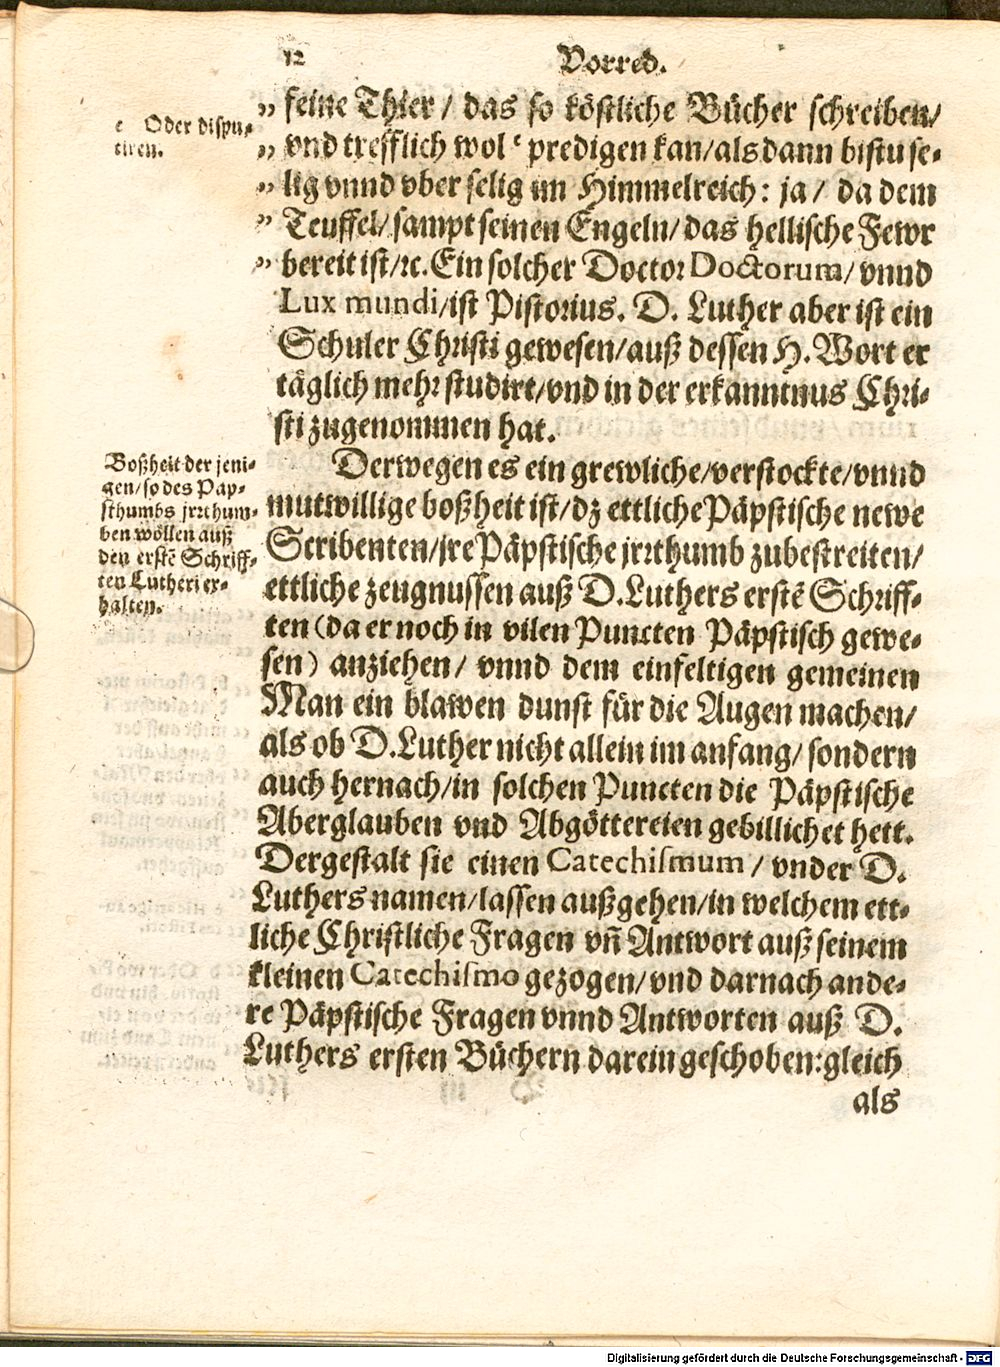 12 Vorred.
e Oder dispu-
tiren.
„ feine Thier / das so köstliche Bücher schreiben/
„ vnd trefflich wol e predigen kan/als dann bistu se-
„ lig vnnd vber selig im Himmelreich: ja / da dem
„ Teuffel/ sampt seinen Engeln/ das hellische Fewr
„ bereit ist/ꝛc. Ein solcher Doctor Doctorum/ vnnd
Lux mundi/ist Pistorius. D. Luther aber ist ein
Schuler Christi gewesen/auß dessen H. Wort er
täglich mehr studirt/vnd in der erkanntnus Chri-
sti zugenommen hat.
Boßheit der jeni-
gen/so des Pap-
sthumbs jrrthum-
ben wöllen auß
den erstē Schriff-
ten Lutheri er-
halten.
Derwegen es ein grewliche/verstockte/vnnd
mutwillige boßheit ist/dz ettliche Päpstische newe
Scribenten/jre Päpstische jrrthumb zubestreiten/
ettliche zeugnussen auß D.Luthers erstē Schriff-
ten (da er noch in vilen Puncten Päpstisch gewe-
sen) anziehen/ vnnd dem einfeltigen gemeinen
Man ein blawen dunst für die Augen machen/
als ob D.Luther nicht allein im anfang/ sondern
auch hernach/in solchen Puncten die Päpstische
Aberglauben vnd Abgöttereien gebillichet hett.
Dergestalt sie einen Catechismum / vnder D.
Luthers namen/lassen außgehen/in welchem ett-
liche Christliche Fragen vñ Antwort auß seinem
kleinen Catechismo gezogen/vnd darnach ande-
re Päpstische Fragen vnnd Antworten auß D.
Luthers ersten Büchern darein geschoben:gleich
als
Digitalisierung gefördert durch die Deutsche Forschungsgemeinschaft - DFG